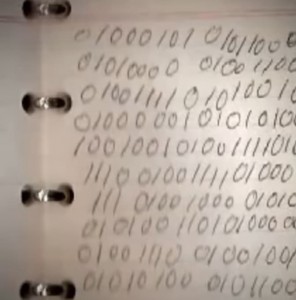 01000101 0101100
01010000 0100 1100
01001111 010 10010
01000001 01010100
1001001 01001111010
1110 01001111 01000
111 0100 1000 01010
010100 1101010000
0100 1110 0100100
01010100 0101100